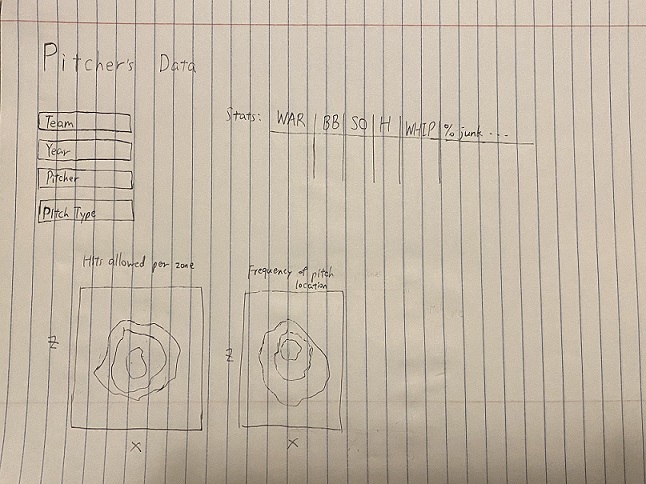 Pitcher's Data
Team
Year
Pitcher
Pitch Type
Stats: WAR BB SO H WHIP % junk ....
Hits allowed per zone
Z
X
Frequency of pitch
location
Z
X